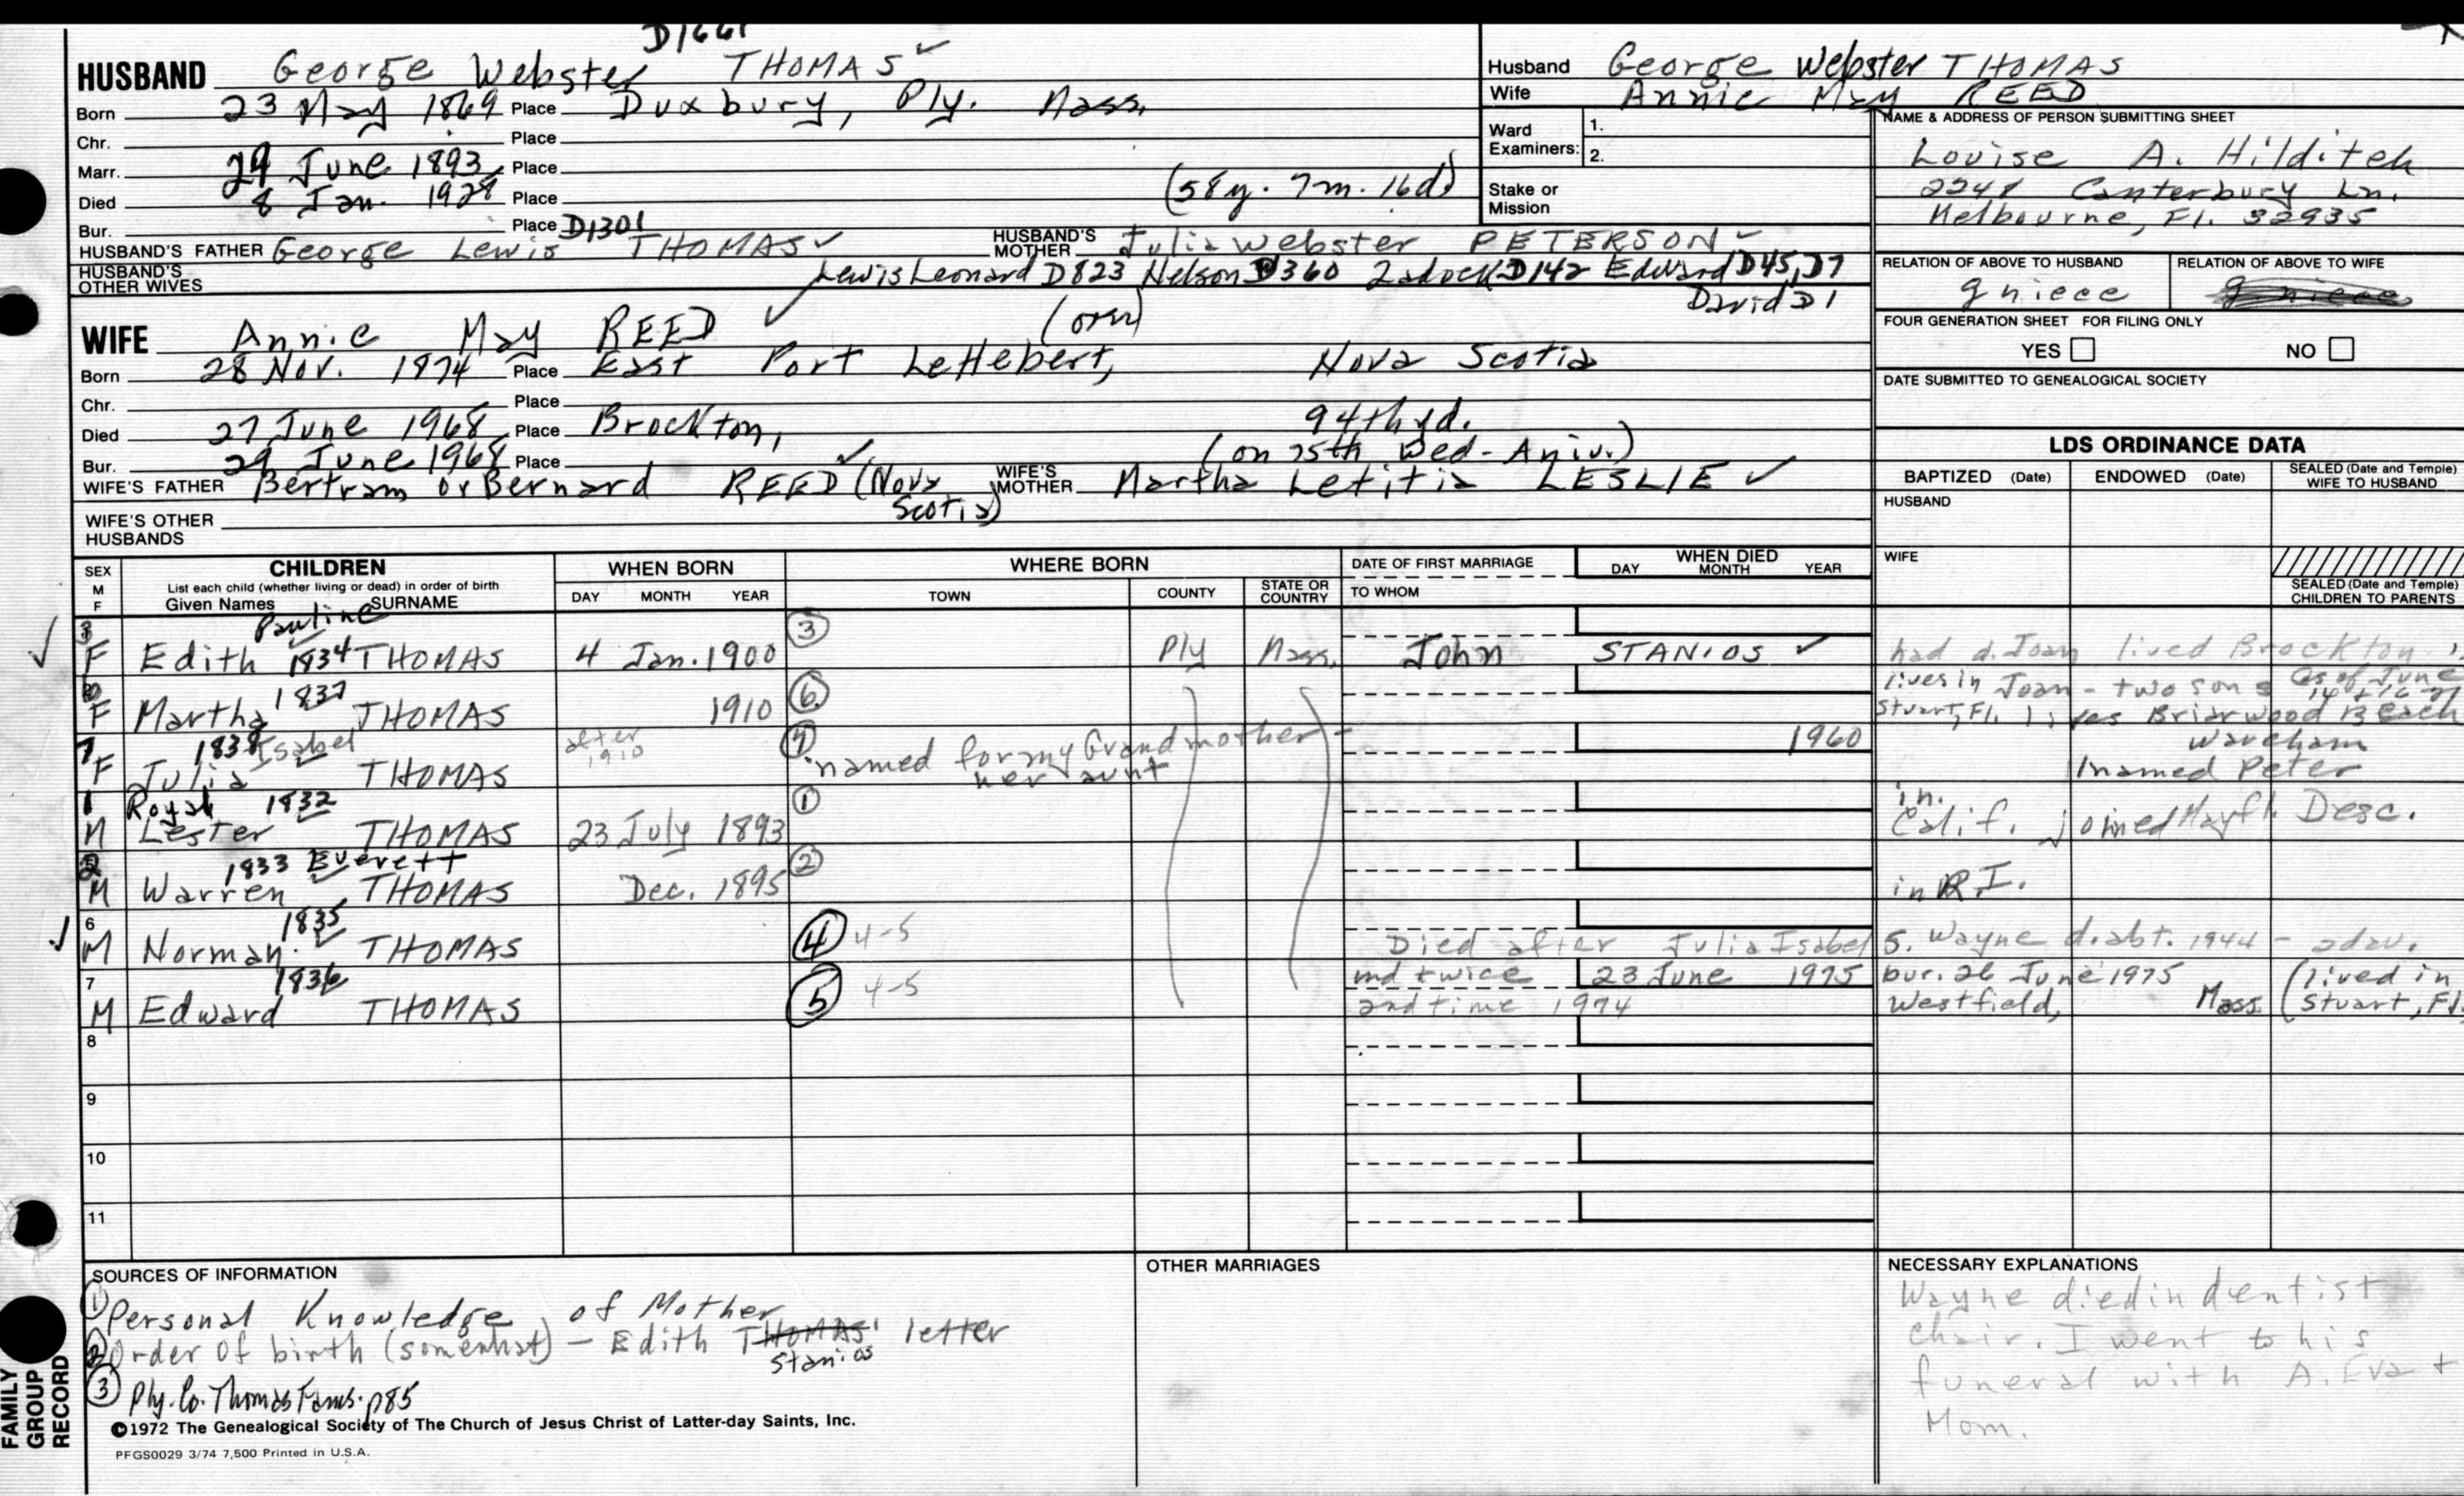 D1661
HUSBAND George Webster THOMAS ✓
Born 23 May 1869 Place Duxbury, Ply. Mass.
Chr. Place
Marr. 29 June 1893 Place
Died 8 Jan. 1928 Place (58y. 7m. 16d)
Bur. Place D1301
HUSBAND'S FATHER George Lewis THOMAS ✓ HUSBAND'S MOTHER Julia Webster PETERSON ✓
HUSBAND'S OTHER WIVES Lewis Leonard D823 Nelson D360 Zadock D142 Edward D45, D7
David D1
WIFE Annie May REED ✓ (orr)
Born 28 Nov. 1874 Place East Port LeHebert, Nova Scotia
Chr. Place
94th yd.
Died 27 June 1968 Place Brockton,
(on 75th Wed-Aniv.)
Bur. 29 June 1968 Place
WIFE'S FATHER Bertram or Bernard REED ✓ (Nova Scotia) WIFE'S MOTHER Martha Letitia LESLIE ✓
WIFE'S OTHER HUSBANDS
Husband George Webster THOMAS
Wife Annie May REED
Ward Examiners: 1.
2.
Stake or Mission
NAME & ADDRESS OF PERSON SUBMITTING SHEET
Louise A. Hilditch
2248 Canterbury Ln.
Melbourne, Fl. 32935
RELATION OF ABOVE TO HUSBAND RELATION OF ABOVE TO WIFE
g niece
FOUR GENERATION SHEET FOR FILING ONLY
YES NO
DATE SUBMITTED TO GENEALOGICAL SOCIETY
LDS ORDINANCE DATA
BAPTIZED (Date) ENDOWED (Date) SEALED (Date and Temple) WIFE TO HUSBAND
HUSBAND
WIFE
SEALED (Date and Temple) CHILDREN TO PARENTS
SEX M F CHILDREN WHEN BORN WHERE BORN DATE OF FIRST MARRIAGE WHEN DIED
List each child (whether living or dead) in order of birth
Given Names SURNAME DAY MONTH YEAR TOWN COUNTY STATE OR COUNTRY TO WHOM DAY MONTH YEAR
Pauline
✓ 3 ③
F Edith 1834 THOMAS 4 Jan. 1900 Ply Mass. John STANIOS ✓ had d. Joan lived Brockton
1837 ⑥ lives in Joan - two sons as of June
F Martha THOMAS 1910 Stuart, Fl. lives Briarwood Beach
Wareham
7 1838 Isabel after 1910 ⑦ 1960
F Julia THOMAS "named for my Grandmother - her aunt 1 named Peter
1 Royal 1832 ①
M Lester THOMAS 23 July 1893 in. Calif. joined Mayfl. Desc.
2 1833 Everett ②
M Warren THOMAS Dec. 1895 in R.I.
6 1835
✓ M Norman THOMAS ④ 4-5 Died after Julia Isabel S. Wayne d. abt. 1944 - adau.
7 1836 md twice 23 June 1975 bur. 26 June 1975 (lived in
M Edward THOMAS ⑤ 4-5 2nd time 1974 Westfield, Mass. (Stuart, Fl.
8
9
10
11
SOURCES OF INFORMATION
① Personal Knowledge of Mother
② Order of birth (somewhat) - Edith THOMAS' letter
Stanios
③ Ply. Co. Thomas Fams. p85
©1972 The Genealogical Society of The Church of Jesus Christ of Latter-day Saints, Inc.
PFGS0029 3/74 7,500 Printed in U.S.A.
FAMILY GROUP RECORD
OTHER MARRIAGES
NECESSARY EXPLANATIONS
Wayne died in dentist
chair. I went to his
funeral with A. Eva +
Mom.